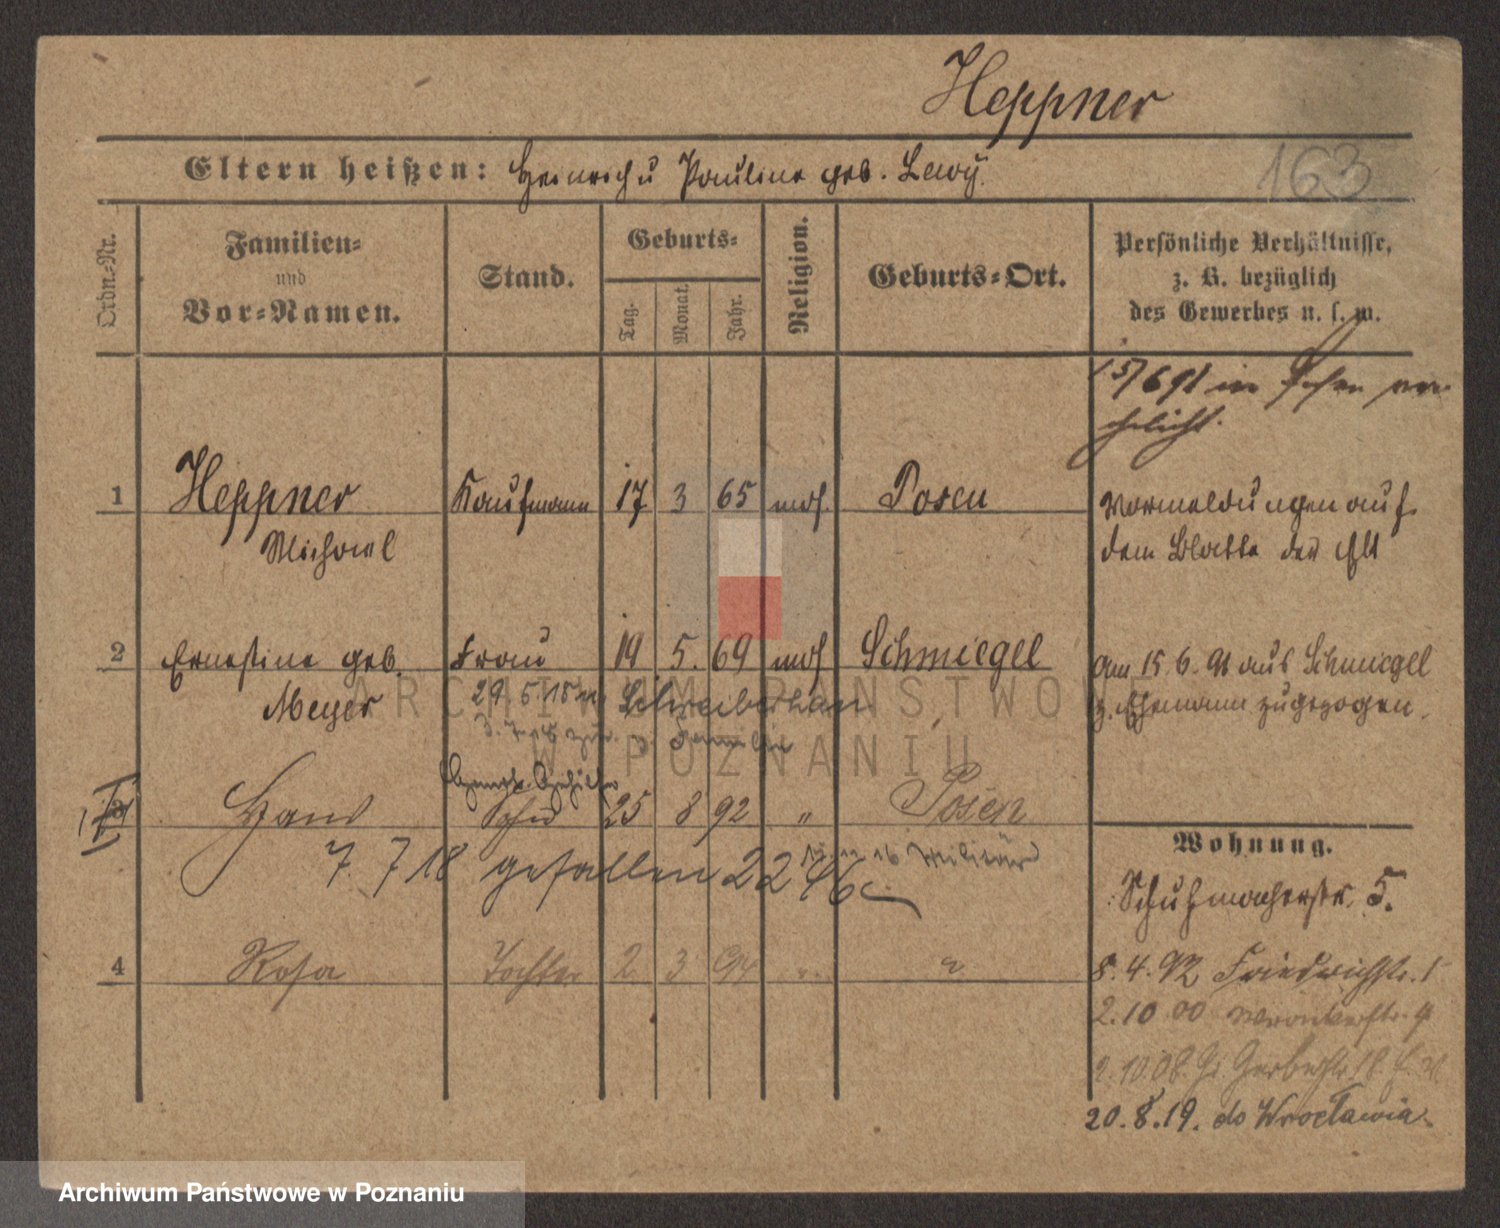 Heppner
163
Eltern heißen: Heinrich u Pauline geb. Lewy.
Ordn.-Nr.
Familien-
und
Vor-Namen.
Stand.
Geburts-
Tag.
Monat.
Jahr.
Religion.
Geburts-Ort.
Persönliche Verhältnisse,
z. B. bezüglich
des Gewerbes u. s. w.
15/6 91 in Posen ver-
ehelicht.
1 Heppner Kaufmann 17 3 65 mos. Posen
Michael
Vormeldungen auf
dem Blatte der Elt
2 Ernestine geb. Frau 19 5. 69 mos Schmiegel
Meyer
Am 15. 6. 91 aus Schmiegel
z. Ehemann zugezogen.
29. 5. 15 Schreiberhau
Familie
3 Hans Sohn 25 8 92 " Posen
16 Militär
7. 7 18 gefallen 2246
4 Rosa Tochter 2 3 94 " "
Wohnung.
Schuhmacherstr. 5.
8. 4. 92 Friedrichstr. 1
2. 10 00
2. 10. 08. Gr Gerberstr
20. 8. 19. do Wrocławia.
ARCHIWUM PAŃSTWOWE
W POZNANIU
Archiwum Państwowe w Poznaniu